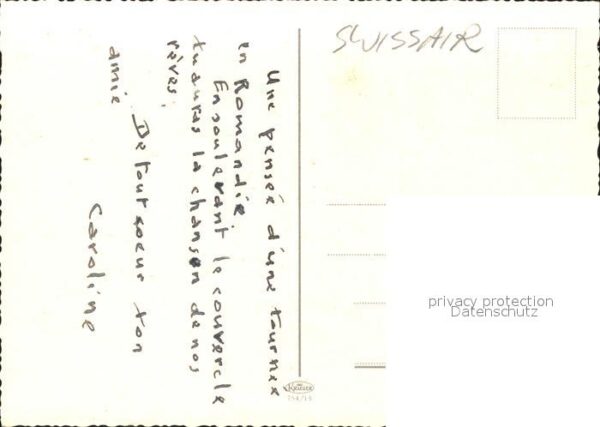 Une pensée d'une tournee
en Romandie
En soulevant le couvercle
tu auras la chanson de nos
rêves.
De tout coeur ton
amie
Caroline
SWISSAIR
Krüger
privacy protection
Datenschutz